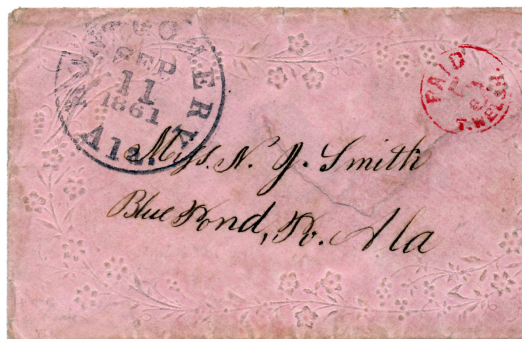 MONTGOMERY
SEP
11
1861
Ala.
PAID
T. WELSH
Miss. N. J. Smith
Blue Pond, Po. Ala